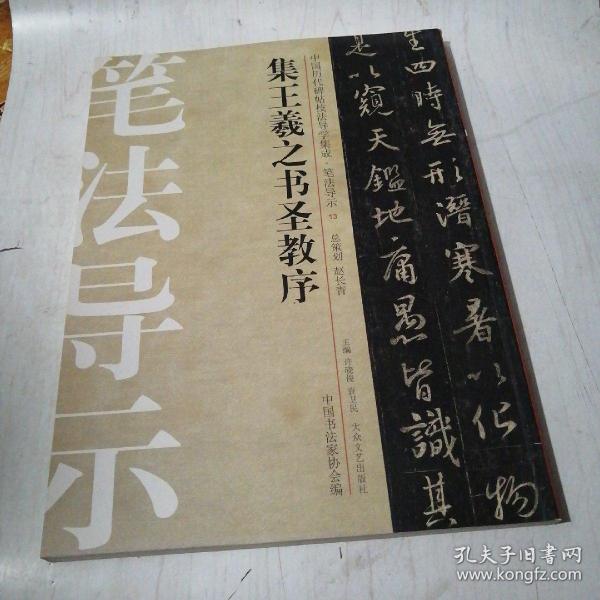 笔法导示
集王羲之书圣教序
中国历代碑帖技法导学集成·笔法导示 13
总策划 赵长青
主编 许晓俊 蔡卫民 大众文艺出版社
中国书法家协会编
生四時無形潛寒暑以化物
是以窺天鑑地庸愚皆識其
孔夫子旧书网
www.kongfz.com